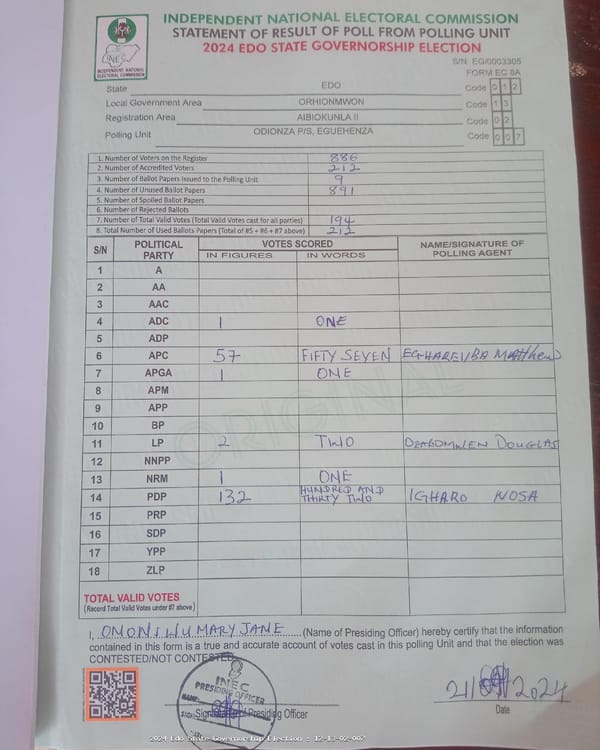 INDEPENDENT NATIONAL ELECTORAL COMMISSION
STATEMENT OF RESULT OF POLL FROM POLLING UNIT
2024 EDO STATE GOVERNORSHIP ELECTION
INEC
INDEPENDENT NATIONAL ELECTORAL COMMISSION
S/N: EG/0003305
FORM EC 8A
State EDO Code 0 1 2
Local Government Area ORHIONMWON Code 1 3
Registration Area AIBIOKUNLA II Code 0 2
Polling Unit ODIONZA P/S, EGUEHENZA Code 0 0 7
1. Number of Voters on the Register 886
2. Number of Accredited Voters 212
3. Number of Ballot Papers Issued to the Polling Unit 9
4. Number of Unused Ballot Papers 891
5. Number of Spoiled Ballot Papers
6. Number of Rejected Ballots
7. Number of Total Valid Votes (Total Valid Votes cast for all parties) 194
8. Total Number of Used Ballots Papers (Total of #5 + #6 + #7 above) 212
S/N POLITICAL PARTY VOTES SCORED NAME/SIGNATURE OF POLLING AGENT
IN FIGURES IN WORDS
1 A
2 AA
3 AAC
4 ADC 1 ONE
5 ADP
6 APC 57 FIFTY SEVEN EGHAREVBA Matthew
7 APGA 1 ONE
8 APM
9 APP
10 BP
11 LP 2 TWO DOUGLAS
12 NNPP
13 NRM 1 ONE
14 PDP 132 HUNDRED AND THIRTY TWO IGHARO NOSA
15 PRP
16 SDP
17 YPP
18 ZLP
ORIGINAL
TOTAL VALID VOTES
(Record Total Valid Votes under #7 above)
I, OMONIWU MARY JANE (Name of Presiding Officer) hereby certify that the information
contained in this form is a true and accurate account of votes cast in this polling Unit and that the election was
CONTESTED/NOT CONTESTED.
INEC
PRESIDING OFFICER
Signature of Presiding Officer
2024
Date
2024 Edo State Governorship Election - 12-13-02-007